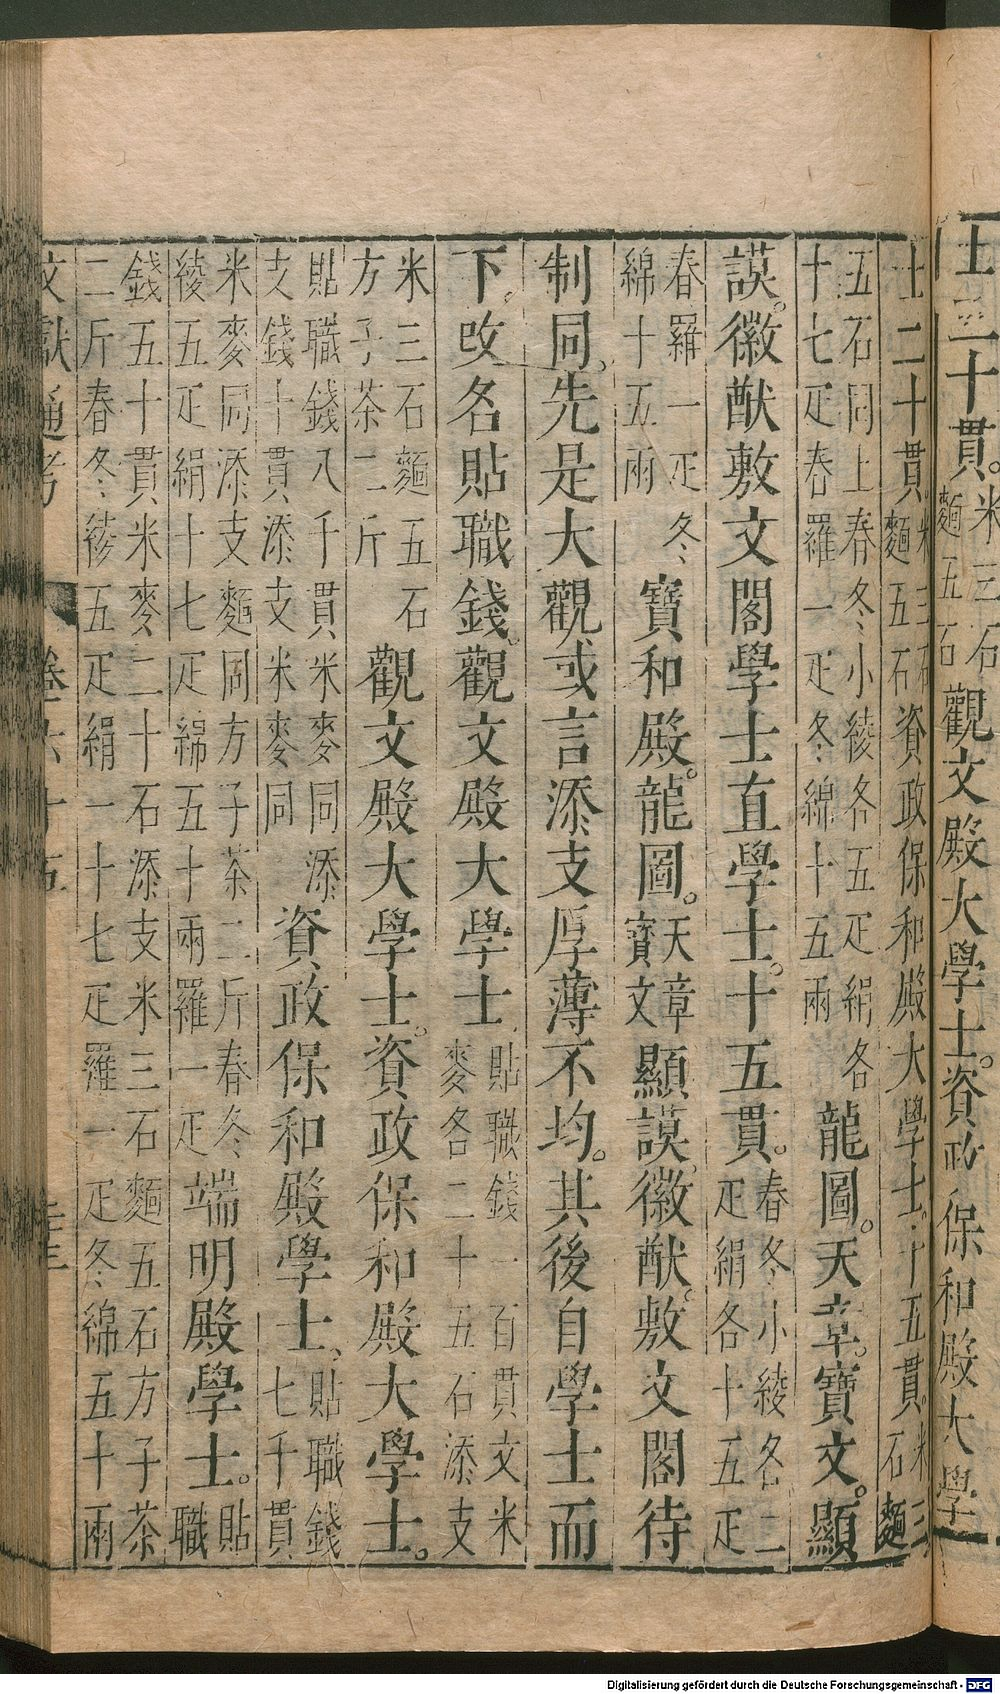 士二十貫米三石麵五石觀文殿大學士資政保和殿大學
士二十貫米三石麵五石資政保和殿大學士十五貫米三石麵
五石同上春冬小綾各五疋絹各十七疋春羅一疋冬綿十五兩龍圖天章寶文顯
謨徽猷敷文閣學士直學士十五貫春冬小綾各二疋絹各十五疋
春羅一疋冬綿十五兩寶和殿龍圖天章寶文顯謨徽猷敷文閣待
制同先是大觀或言添支厚薄不均其後自學士而
下改名貼職錢觀文殿大學士貼職錢一百貫文米麥各二十五石添支
米三石麵五石方子茶二斤觀文殿大學士資政保和殿大學士
貼職錢八千貫米麥同添支錢十貫添支米麥同資政保和殿學士貼職錢七千貫
米麥同添支麵同方子茶二斤春冬綾五疋絹十七疋綿五十兩羅一疋端明殿學士貼職
錢五十貫米麥二十石添支米三石麵五石方子茶二斤春冬綾五疋絹一十七疋羅一疋冬綿五十兩
文獻通考 卷六十五
Digitalisierung gefördert durch die Deutsche Forschungsgemeinschaft - DFG